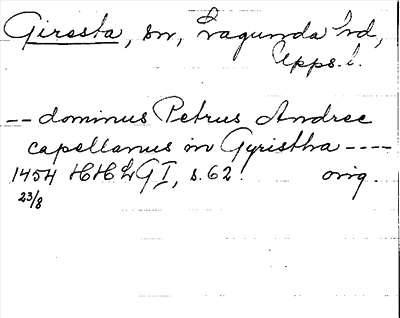 Giresta, sn, Lagunda hd,
Upps. l.
-- dominus Petrus Andree
capellanus in Gyristha ----
1454 HHLG I, s. 62. orig.
23/8